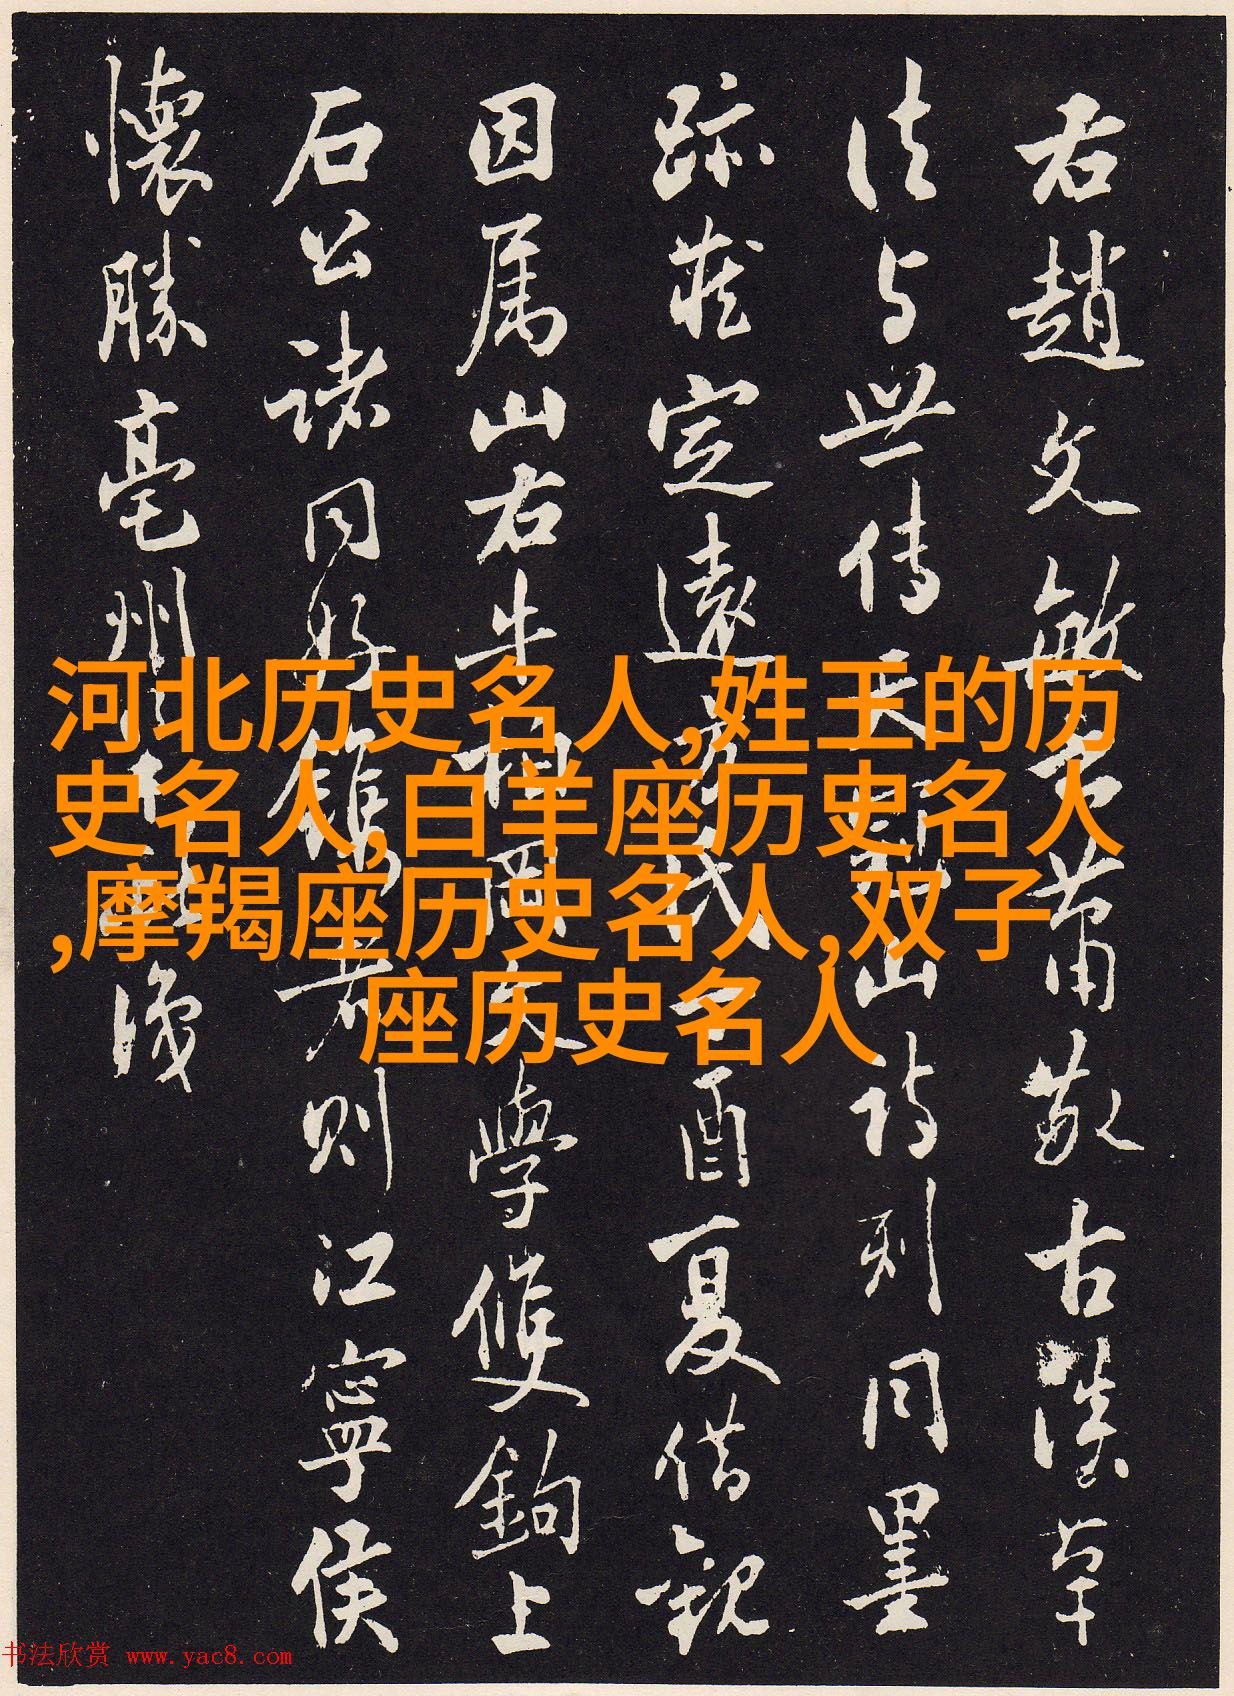 河北历史名人,姓王的历
史名人,白羊座历史名人
,摩羯座历史名人,双子
座历史名人
右趙文敏書 敬古 草
法与世傳天冠山詩刻同墨
跡藏定遠方氏丁酉夏借觀
因属山右牛 學雙鉤上
石公諸同好鐫者則江寧侯
懷勝亳州
书法欣赏 www.yac8.com